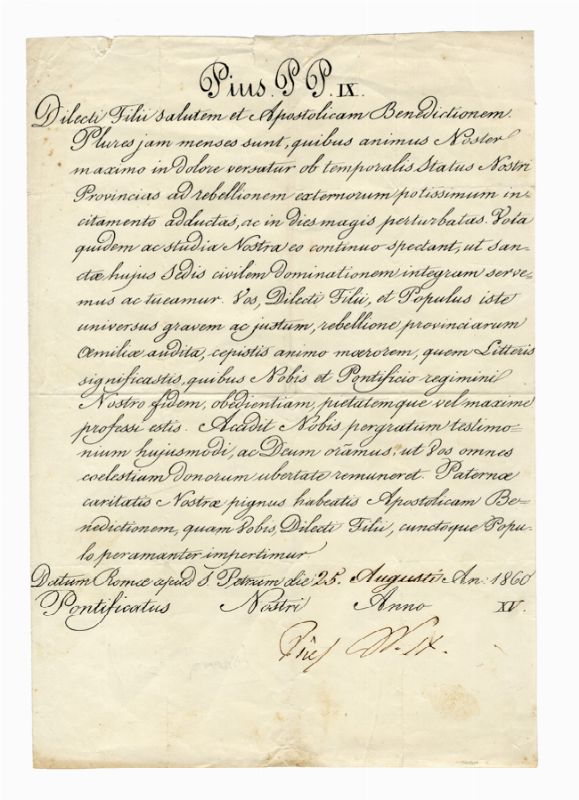 Pius. P P. IX.
Dilecti Filii salutem et Apostolicam Benedictionem.
Plures jam menses sunt, quibus animus Noster
maximo in dolore versatur ob temporalis Status Nostri
Provincias ad rebellionem externorum potissimum in-
citamento adductas, ac in dies magis perturbatas. Vota
quidem ac studia Nostra eo continuo spectant, ut San-
ctæ hujus Sedis civilem dominationem integram serve-
mus ac tueamur. Vos, Dilecti Filii, et Populus iste
universus gravem ac justum, rebellione provinciarum
Æmiliæ audita, cepistis animo mœrorem, quem Litteris
significastis, quibus Nobis et Pontificio regimini
Nostro fidem, obedientiam, pietatemque vel maxime
professi estis. Acadit Nobis pergratum testimo-
nium hujusmodi, ac Deum oramus, ut Vos omnes
coelestium donorum ubertate remuneret. Paternæ
caritatis Nostræ pignus habeatis Apostolicam Be=
nedictionem, quam Vobis, Dilecti Filii, cunctoque Popu-
lo peramanter impertimur
Datum Romæ apud S. Petrum die 25. Augusti An: 1860
Pontificatus Nostri Anno XV.
Pius PP. IX.